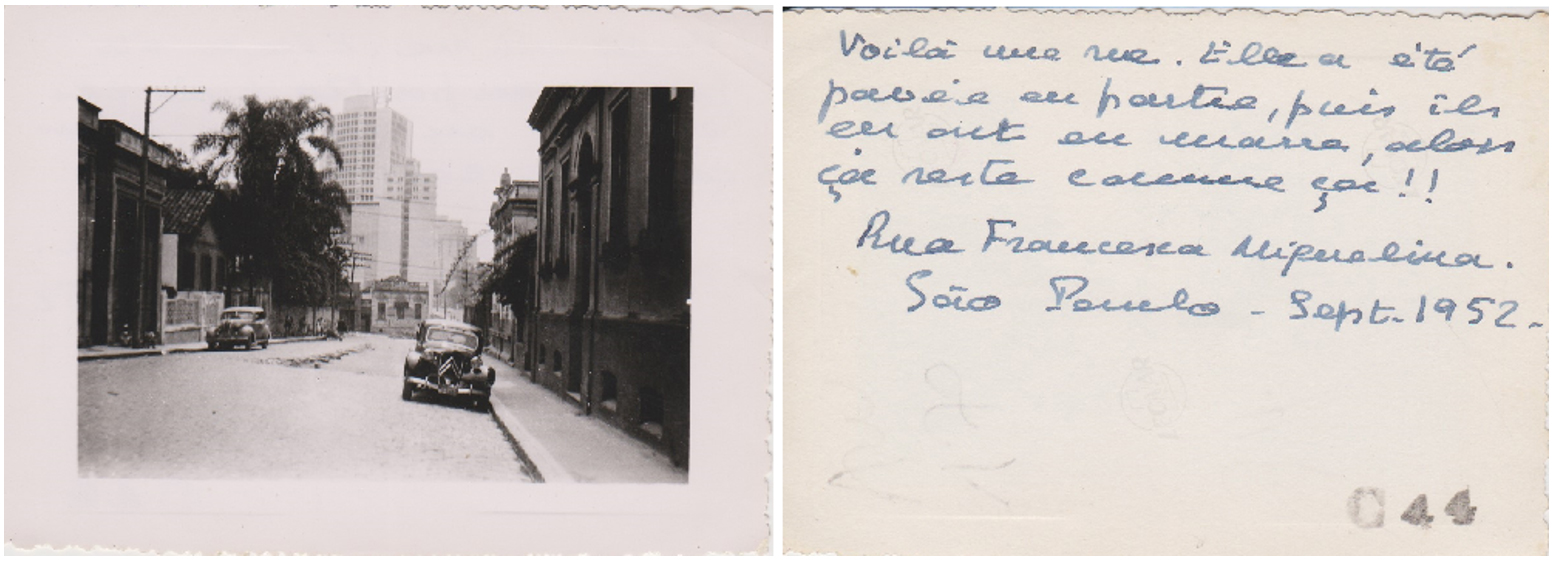 Voilà une rue. Elle a été
pavée en partie, puis ils
en ont en marre, alors
ça reste comme ça !!
Rua Francesca Miguelina.
São Paulo - Sept. 1952.
44